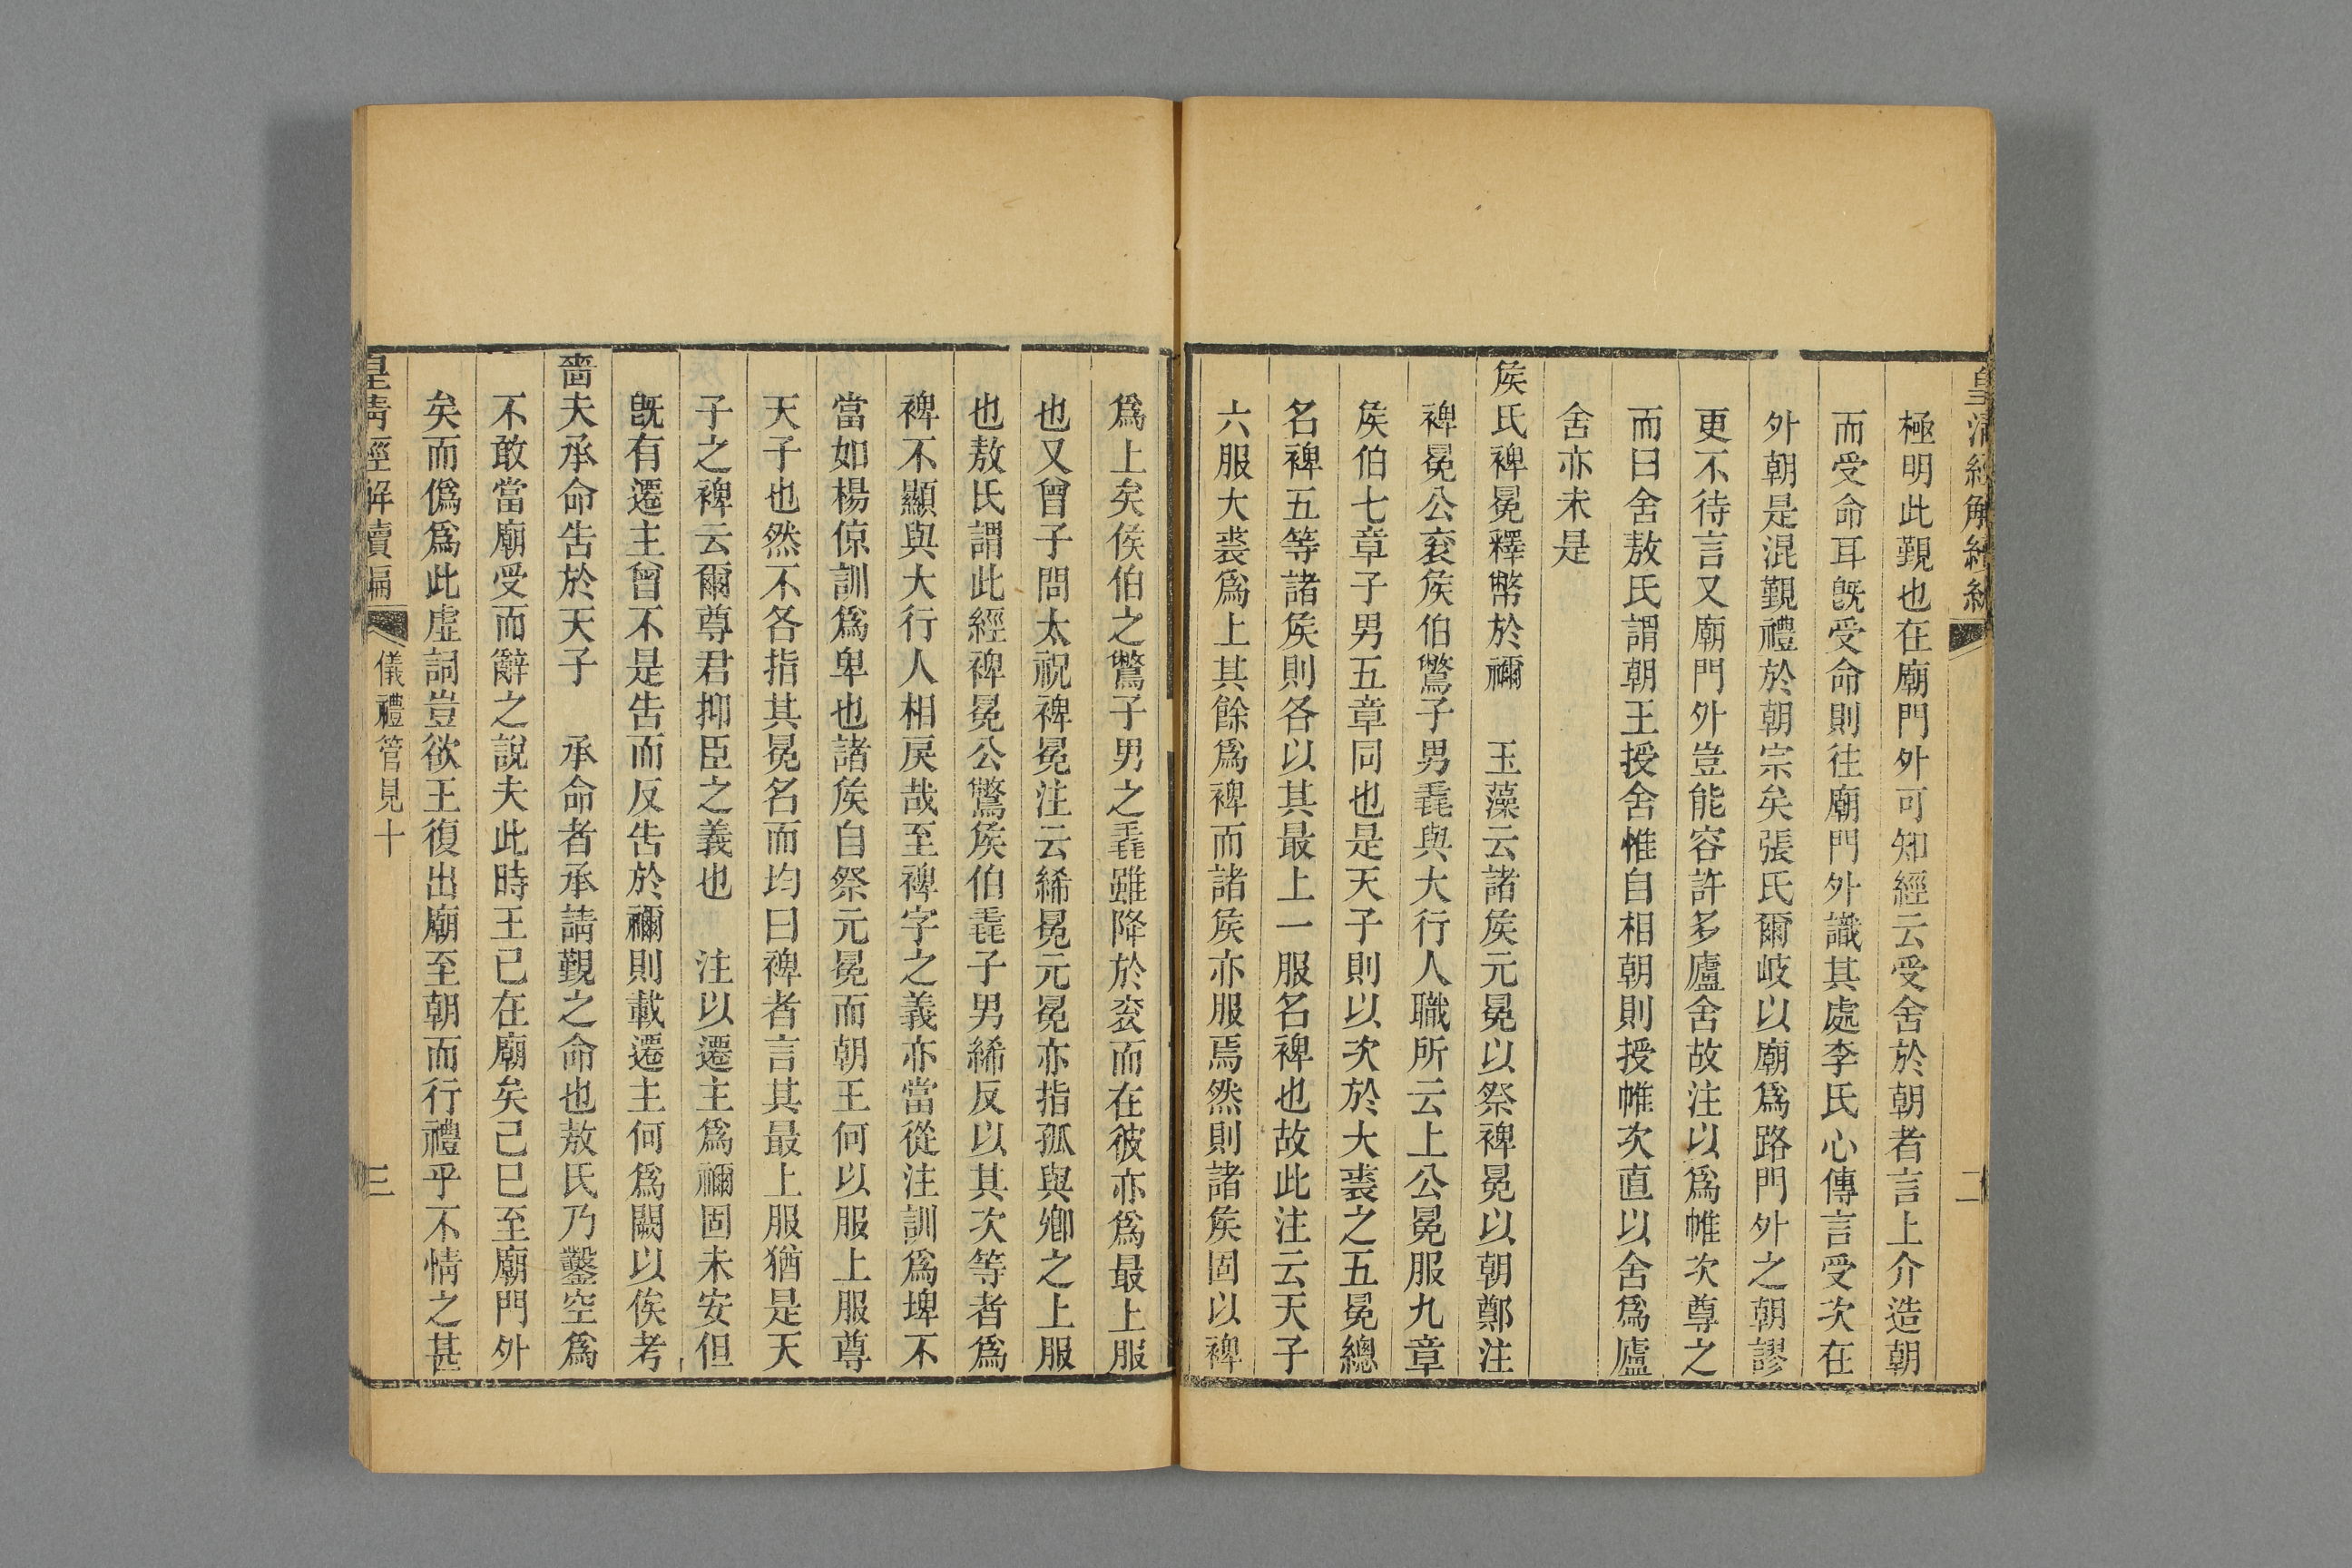 極明此覲也在廟門外可知經云受舍於朝者言上介造朝
而受命耳旣受命則往廟門外識其處李氏心傳言受次在
外朝是混覲禮於朝宗矣張氏爾岐以廟爲路門外之朝謬
更不待言又廟門外豈能容許多廬舍故注以爲帷次尊之
而曰舍敖氏謂朝王授舍惟自相朝則授帷次直以舍爲廬
舍亦未是
矦氏裨冕釋幣於禰　玉藻云諸矦元冕以祭裨冕以朝鄭注
裨冕公衮矦伯鷩子男毳與大行人職所云上公冕服九章
矦伯七章子男五章同也是天子則以次於大裘之五冕總
名裨五等諸矦則各以其最上一服名裨也故此注云天子
六服大裘爲上其餘爲裨而諸矦亦服焉然則諸矦固以裨
爲上矣侯伯之鷩子男之毳雖降於衮而在彼亦爲最上服
也又曾子問太祝裨冕注云絺冕元冕亦指孤與卿之上服
也敖氏謂此經裨冕公鷩矦伯毳子男絺反以其次等者爲
裨不顯與大行人相戾哉至裨字之義亦當從注訓爲埤不
當如楊倞訓爲卑也諸矦自祭元冕而朝王何以服上服尊
天子也然不各指其冕名而均曰裨者言其最上服猶是天
子之裨云爾尊君抑臣之義也　注以遷主爲禰固未安但
旣有遷主曾不是告而反告於禰則載遷主何爲闕以俟考
嗇夫承命告於天子　承命者承請覲之命也敖氏乃鑿空爲
不敢當廟受而辭之說夫此時王已在廟矣己巳至廟門外
矣而僞爲此虛詞豈欲王復出廟至朝而行禮乎不情之甚
皇清經解續編　儀禮管見十　三